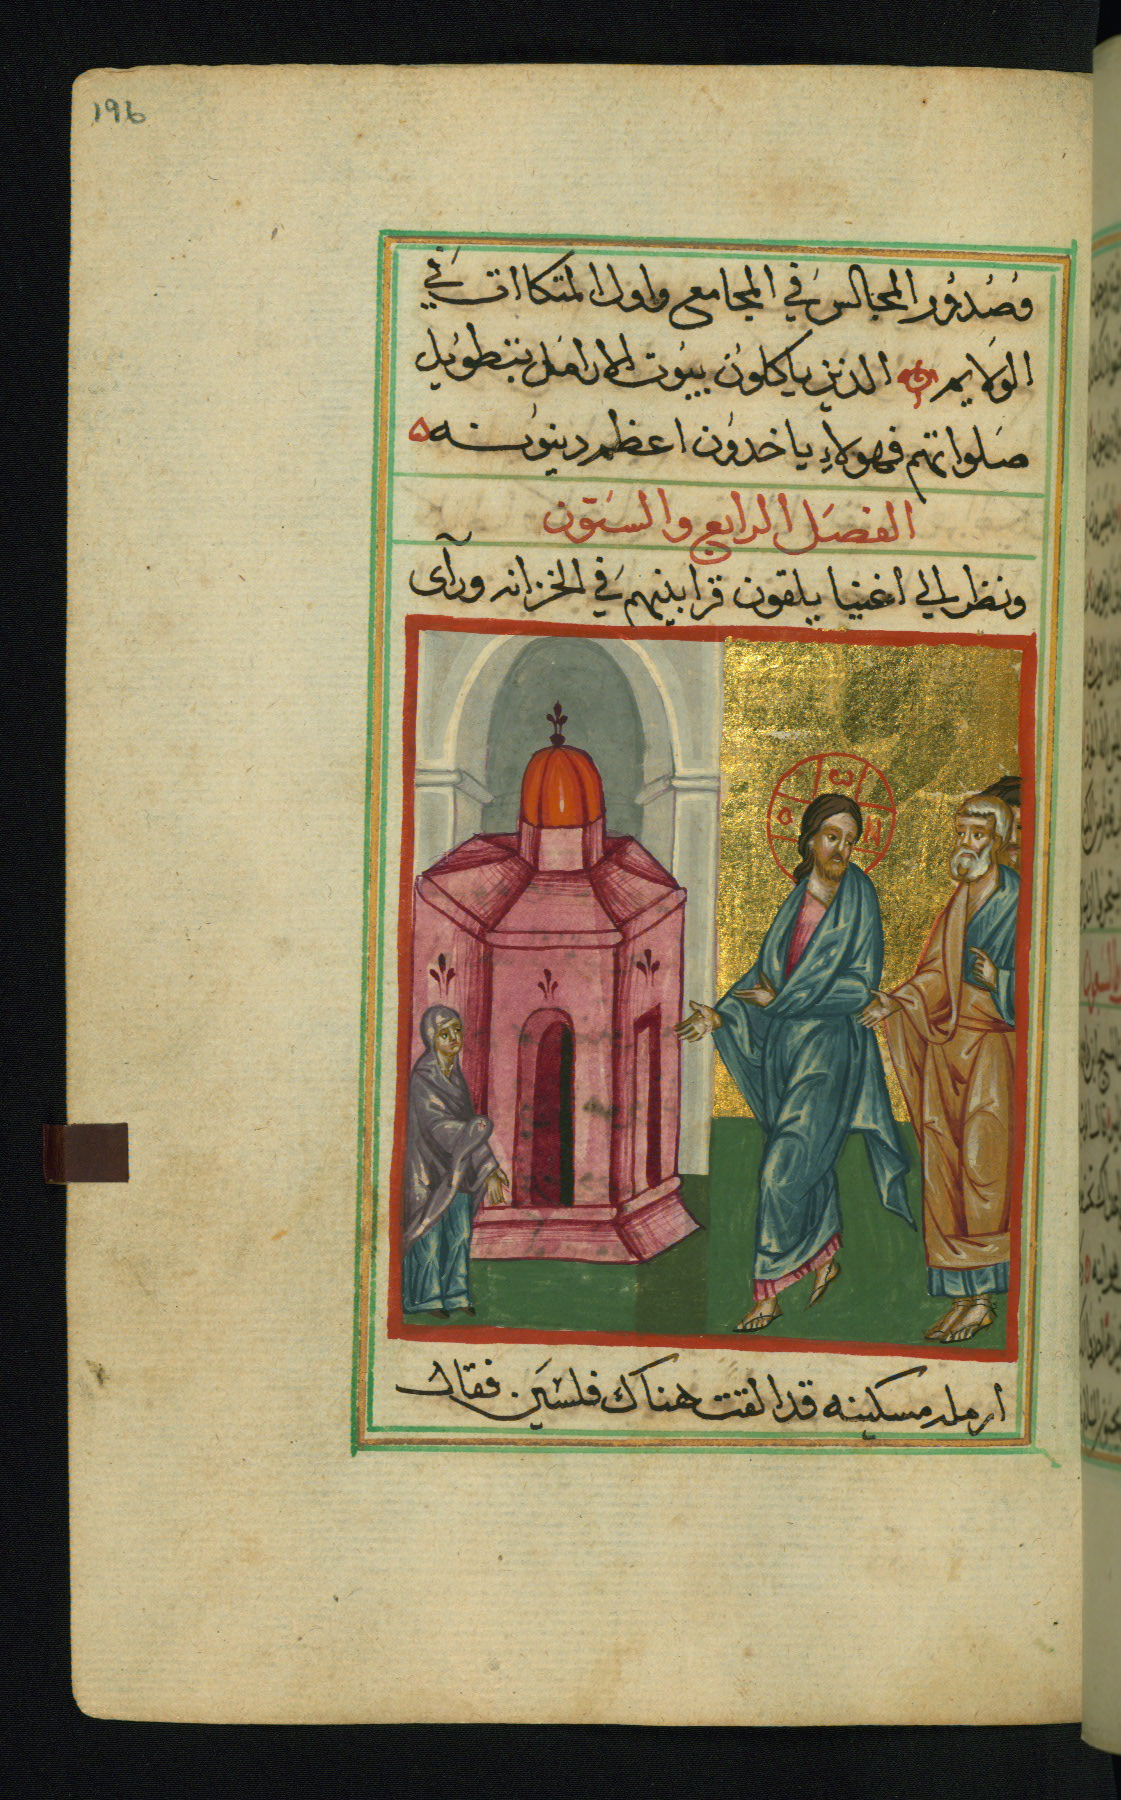 196
وصُدوُر المجالس في المجامع واول المتكاات في
الولايم الذين ياكلون بيوت الارامل بتطويل
صلواتهم فهولاءِ ياخدون اعظم دينونه ه
الفصل الرابع والستون
ونظر الي اغنيا يلقون قرابينهم في الخزانه ورآى
ο ω Ν
ارمله مسكينه قد القت هناك فلسين. فقال